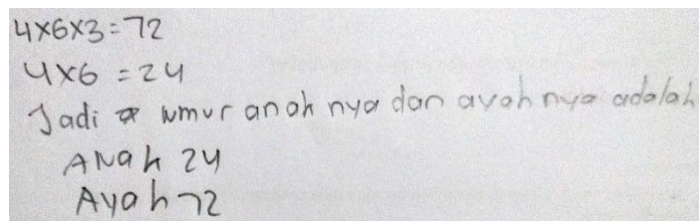 4x6x3=72
4x6 = 24
Jadi umur anah nya dan ayah nya adalah
ANah 24
Ayah 72